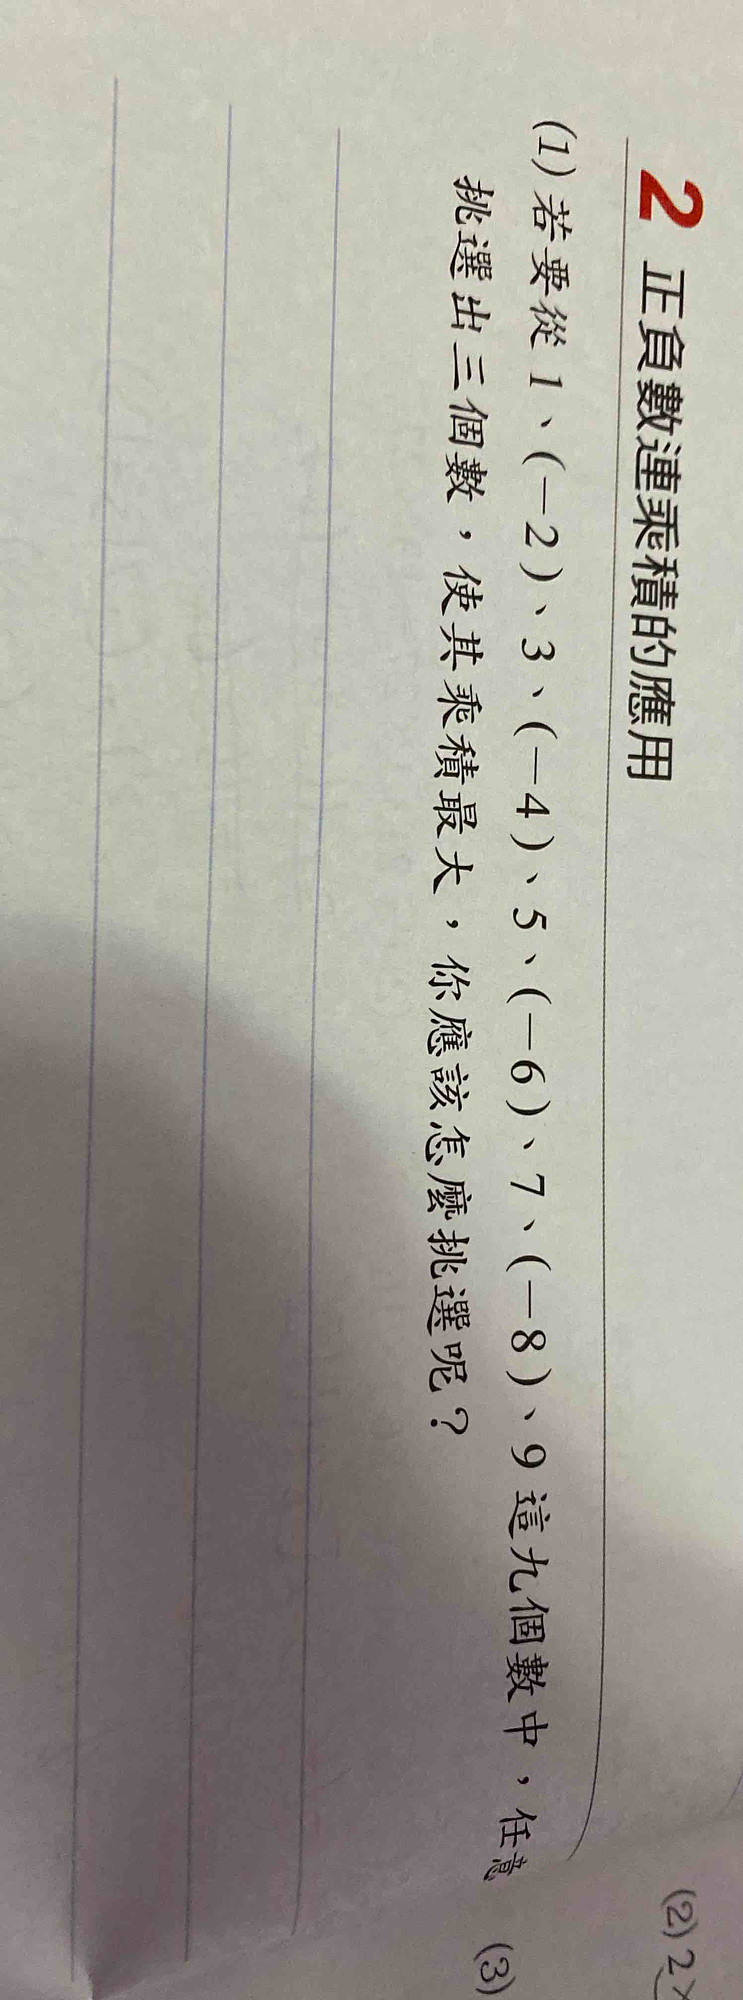 2 正負數連乘積的應用
(1) 若要從 1、(-2)、3、(-4)、5、(-6)、7、(-8)、9 這九個數中，任意
挑選出三個數，使其乘積最大，你應該怎麼挑選呢？
(2) 2×
(3)